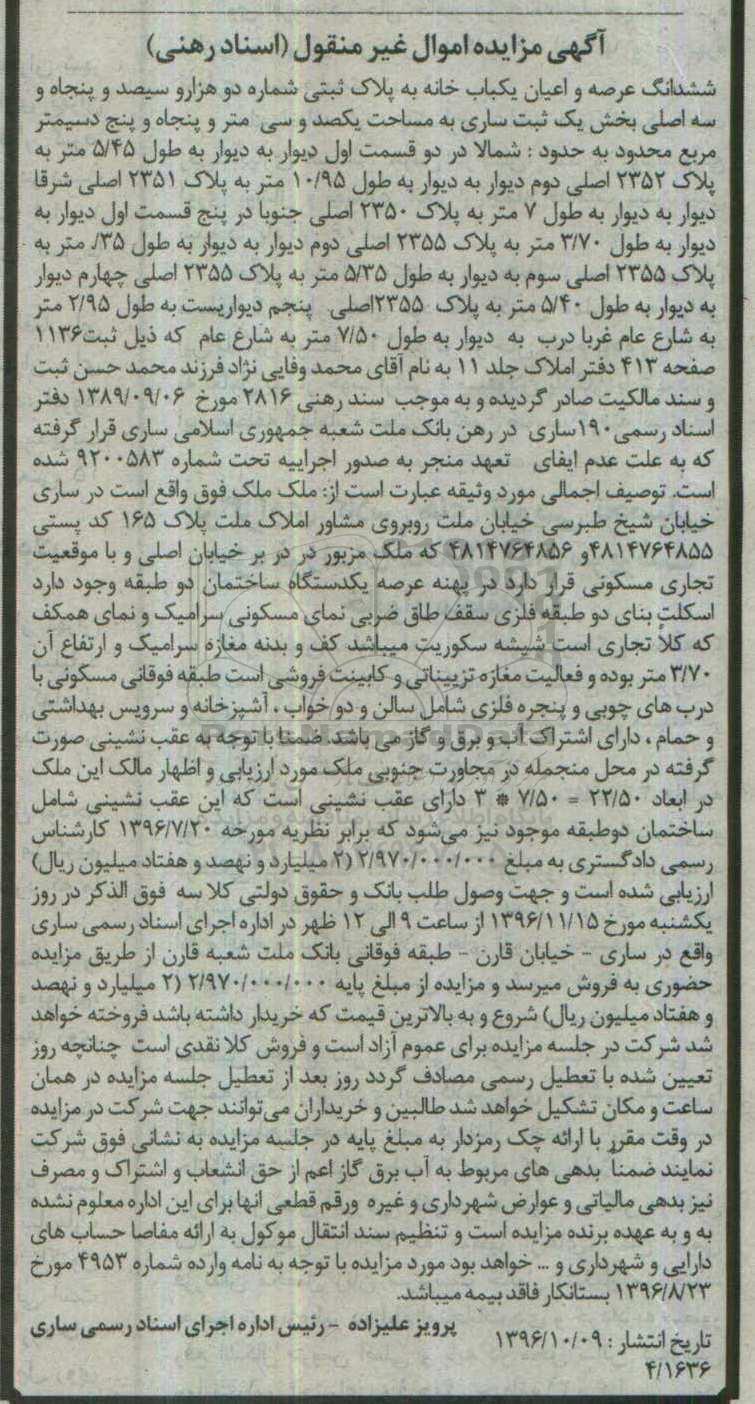 آگهی مزایده اموال غیر منقول (اسناد رهنی)
ششدانگ عرصه و اعیان یکباب خانه به پلاک ثبتی شماره دو هزارو سیصد و پنجاه و
سه اصلی بخش یک ثبت ساری به مساحت یکصد و سی متر و پنجاه و پنج دسیمتر
مربع محدود به حدود : شمالا در دو قسمت اول دیوار به دیوار به طول ۵/۴۵ متر به
پلاک ۲۳۵۲ اصلی دوم دیوار به دیوار به طول ۱۰/۹۵ متر به پلاک ۲۳۵۱ اصلی شرقا
دیوار به دیوار به طول ۷ متر به پلاک ۲۳۵۰ اصلی جنوبا در پنج قسمت اول دیوار به
دیوار به طول ۳/۷۰ متر به پلاک ۲۳۵۵ اصلی دوم دیوار به دیوار به طول ۳۵/. متر به
پلاک ۲۳۵۵ اصلی سوم به دیوار به طول ۵/۳۵ متر به پلاک ۲۳۵۵ اصلی چهارم دیوار
به دیوار به طول ۵/۴۰ متر به پلاک ۲۳۵۵اصلی پنجم دیواریست به طول ۲/۹۵ متر
به شارع عام غربا درب به دیوار به طول ۷/۵۰ متر به شارع عام که ذیل ثبت۱۱۳۶
صفحه ۴۱۳ دفتر املاک جلد ۱۱ به نام آقای محمد وفایی نژاد فرزند محمد حسن ثبت
و سند مالکیت صادر گردیده و به موجب سند رهنی ۲۸۱۶ مورخ ۱۳۸۹/۰۹/۰۶ دفتر
اسناد رسمی۱۹۰ساری در رهن بانک ملت شعبه جمهوری اسلامی ساری قرار گرفته
که به علت عدم ایفای تعهد منجر به صدور اجراییه تحت شماره ۹۲۰۰۵۸۳ شده
است. توصیف اجمالی مورد وثیقه عبارت است از: ملک ملک فوق واقع است در ساری
خیابان شیخ طبرسی خیابان ملت روبروی مشاور املاک ملت پلاک ۱۶۵ کد پستی
۴۸۱۴۷۶۴۸۵۵و ۴۸۱۴۷۶۴۸۵۶ که ملک مزبور در در بر خیابان اصلی و با موقعیت
تجاری مسکونی قرار دارد در پهنه عرصه یکدستگاه ساختمان دو طبقه وجود دارد
اسکلت بنای دو طبقه فلزی سقف طاق ضربی نمای مسکونی سرامیک و نمای همکف
که کلا تجاری است شیشه سکوریت میباشد کف و بدنه مغازه سرامیک و ارتفاع آن
۳/۷۰ متر بوده و فعالیت مغازه تزییناتی و کابینت فروشی است طبقه فوقانی مسکونی با
درب های چوبی و پنجره فلزی شامل سالن و دو خواب ، آشپزخانه و سرویس بهداشتی
و حمام ، دارای اشتراک آب و برق و گاز می باشد. ضمنا با توجه به عقب نشینی صورت
گرفته در محل منجمله در مجاورت جنوبی ملک مورد ارزیابی و اظهار مالک این ملک
در ابعاد ۲۲/۵۰ = ۷/۵۰ * ۳ دارای عقب نشینی است که این عقب نشینی شامل
ساختمان دوطبقه موجود نیز می‌شود که برابر نظریه مورخه ۱۳۹۶/۷/۲۰ کارشناس
رسمی دادگستری به مبلغ ۲/۹۷۰/۰۰۰/۰۰۰ (۲ میلیارد و نهصد و هفتاد میلیون ریال)
ارزیابی شده است و جهت وصول طلب بانک و حقوق دولتی کلا سه فوق الذکر در روز
یکشنبه مورخ ۱۳۹۶/۱۱/۱۵ از ساعت ۹ الی ۱۲ ظهر در اداره اجرای اسناد رسمی ساری
واقع در ساری - خیابان قارن - طبقه فوقانی بانک ملت شعبه قارن از طریق مزایده
حضوری به فروش میرسد و مزایده از مبلغ پایه ۲/۹۷۰/۰۰۰/۰۰۰ (۲ میلیارد و نهصد
و هفتاد میلیون ریال) شروع و به بالاترین قیمت که خریدار داشته باشد فروخته خواهد
شد شرکت در جلسه مزایده برای عموم آزاد است و فروش کلا نقدی است چنانچه روز
تعیین شده با تعطیل رسمی مصادف گردد روز بعد از تعطیل جلسه مزایده در همان
ساعت و مکان تشکیل خواهد شد طالبین و خریداران می‌توانند جهت شرکت در مزایده
در وقت مقرر با ارائه چک رمزدار به مبلغ پایه در جلسه مزایده به نشانی فوق شرکت
نمایند ضمنا بدهی های مربوط به آب برق گاز اعم از حق انشعاب و اشتراک و مصرف
نیز بدهی مالیاتی و عوارض شهرداری و غیره ورقم قطعی انها برای این اداره معلوم نشده
به و به عهده برنده مزایده است و تنظیم سند انتقال موکول به ارائه مفاصا حساب های
دارایی و شهرداری و ... خواهد بود مورد مزایده با توجه به نامه وارده شماره ۴۹۵۳ مورخ
۱۳۹۶/۸/۲۳ بستانکار فاقد بیمه میباشد.
پرویز علیزاده - رئیس اداره اجرای اسناد رسمی ساری
تاریخ انتشار : ۱۳۹۶/۱۰/۰۹
۴/۱۶۳۶